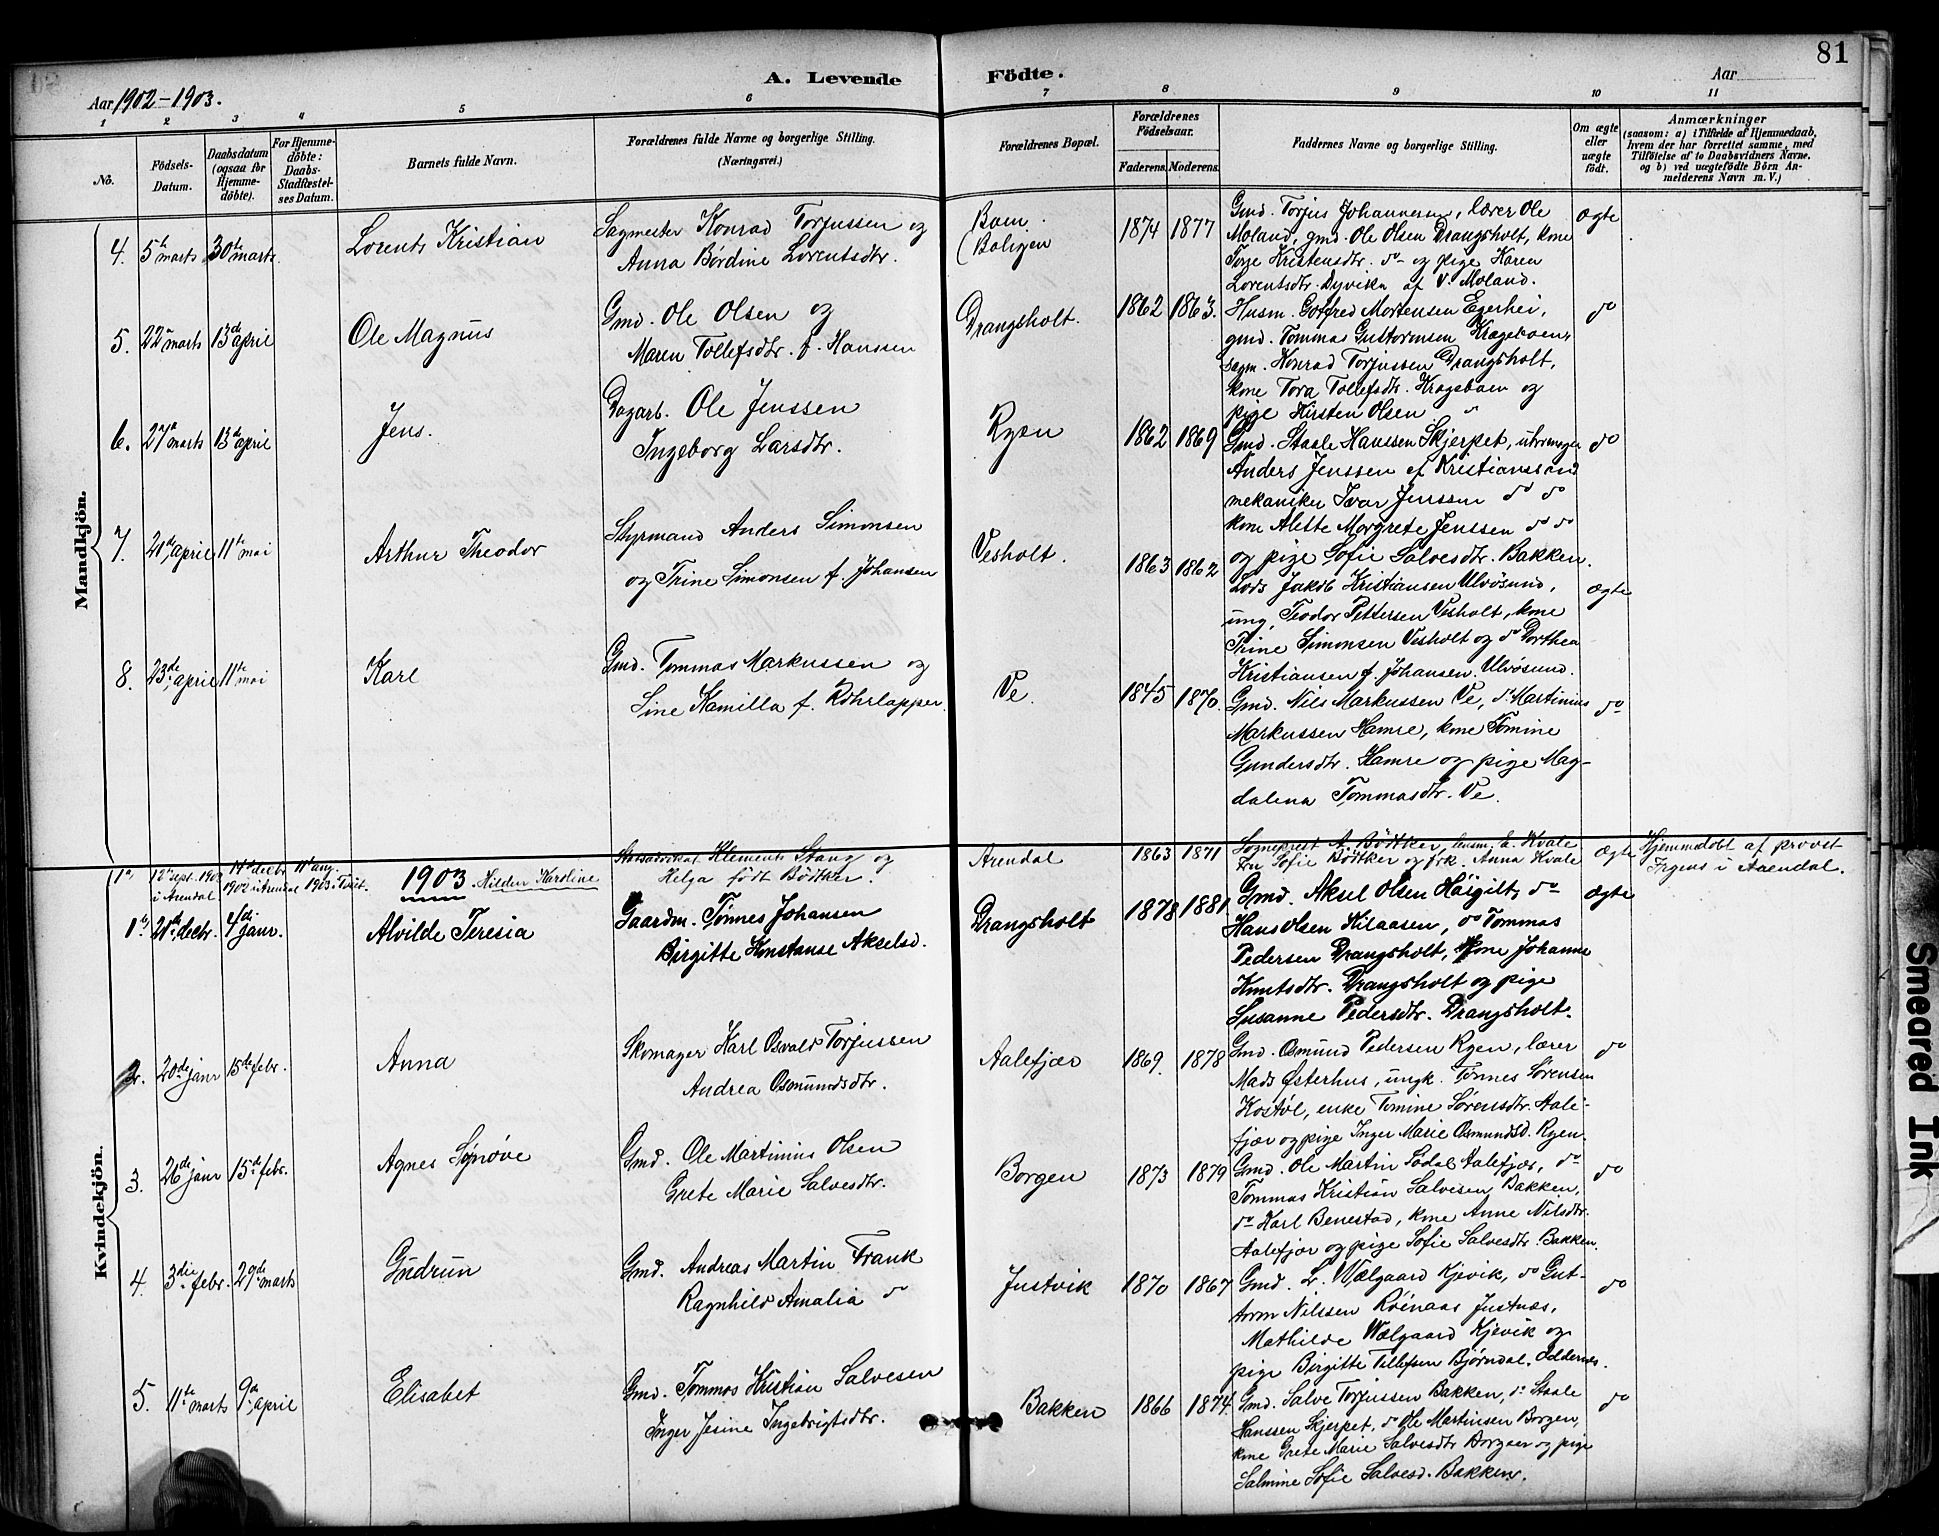 81
A. Levende Födte.
Aar 1902-1903.
Aar
1 2 3 4 5 6 7 8 9 10 11
No.
Födsels-Datum.
Daabsdatum (ogsaa för Hjemme-döbte).
For Hjemme-döbte: Daabs-Stadfæstel-ses Datum.
Barnets fulde Navn.
Forældrenes fulde Navne og borgerlige Stilling.
(Næringsvei.)
Forældrenes Bopæl.
Forældrenes Födselsaar.
Faderens. Moderens.
Faddernes Navne og borgerlige Stilling.
Om ægte eller uægte födt.
Anmærkninger
(saasom: a) i Tilfælde af Hjemmedaab,
hvem der har forrettet samme, med
Tilföielse af to Daabsvidners Navne,
og b) ved uægtefödte Börn An-
melderens Navn m. V.)
Mandkjön.
4. 5te marts 30te marts Lorents Kristian
Sagmester Konrad Torjussen og
Anna Børdine Lorentsdtr.
Boen.
(Boligen
1874 1877
Gmd. Torjus Johannesen, lærer Ole
Moland, gmd. Ole Olsen Drangsholt, kone
Torje Kristensdtr. do og pige Karen
Lorentsdtr. Dyvika af V. Moland.
ægte
5. 22n marts 13de april Ole Magnus
Gmd. Ole Olsen og
Maren Tollefsdtr. f. Hanssen
Drangsholt.
1862 1863.
Husm. Gotfred Mortensen Egerhei,
gmd. Tommas Guttormsen Kragebaen,
sagm. Konrad Torjussen Drangsholt,
kone Tora Tollefsdtr. Kragebaen og
pige Kirsten Olsen "
do
6. 27n marts 13de april Jens.
Dagarb. Ole Jenssen
Ingeborg Larsdtr.
Ryen
1862 1869
Gmd. Staale Hanssen Skjerpet, uhrmager
Anders Jenssen af Kristianssand
mekaniker Ivar Jenssen do do
kone Alette Margrete Jenssen do do
og pige Sofie Salvesdtr. Bakken.
do
7. 21de april 11te mai Arthur Theodor
Styrmand Anders Simonsen
og Trine Simonsen f. Johansen
Vesholt.
1863 1862
Lods Jakob Kristiansen Ulvøsund,
ung. Teodor Pettersen Vesholt, kone
Trine Simonsen Vesholt og do Dorthea
Kristiansen f. Johansen. Ulvøsund.
ægte
8. 23de april 11te mai Karl
Gmd. Tommas Markussen og
Sine Kamilla f. Röhrlapper.
Ve.
1845 1870.
Gmd. Nils Markussen Ve, do Martinius
Markussen Hamre, kone Tomine
Gundersdtr. Hamre og pige Mag-
dalena Tommasdtr. Ve.
do
Kvindekjön.
1a 12te sept. 1902 i Arendal 14de decbr. 1902 i Arendal 11te aug. 1903 i Tveit. 1903 Hilden Karoline
Statsadvokat Klements Stang og
Helga født Bödtker.
Arendal
1863 1871
Sogneprest A. Bödtker, lensm. E. Kvale
Fru Sofie Bödtker og frk. Anna Kvale
ægte
Hjemmedöbt af provst
Irgens i Arendal.
1b 21de decbr. 4de janr. Alvilde Teresia
Gaardm. Tönnes Johansen
Birgitte Konstanse Akselsd.
Drangsholt
1878 1881
Gmd. Aksel Olsen Höigilt, do
Hans Olsen Kilaasen, do Tommas
Pedersen Drangsholt, kone Johanne
Knutsdtr. Drangsholt og pige
Susanne Pedersdtr. Drangsholt.
ægte
2. 20de janr 15de febr. Anna
Skomager Karl Osvald Torjussen
Andrea Osmundsdtr.
Aalefjær
1869. 1878
Gmd. Osmund Pedersen Ryen, lærer
Mads Østerhus, ungk. Tønnes Sørensen
Kostøl, enke Tomine Sørensdtr. Aale-
fjær og pige Inger Marie Osmundsd. Ryen.
do
3. 26de janr 15de febr. Agnes Synøve
Gmd. Ole Martinius Olsen
Grete Marie Salvesdtr.
Borgen
1873 1879
Gmd. Ole Martin Sødal Aalefjær, do
Tommas Kristian Salvesen Bakken,
do Karl Benestad, kone Anne Nilsdtr.
Aalefjær og pige Sofie Salvesdtr. Bakken.
do
4. 3die febr. 29de marts Gudrun
Gmd. Andreas Martin Frank
Ragnhild Amalia do
Justvik
1870 1867
Gmd. L. Wælgaard Kjevik, do Gut-
torm Nilssen Röinaas Justnæs,
Mathilde Wælgaard Kjevik og
pige Birgitte Tellefsen Bjørndal. Oddernes.
do
5. 11te marts 9de april Elisabet
Gmd. Tommas Kristian Salvesen
Inger Jesine Ingebrigtsdtr.
Bakken
1866 1874
Gmd. Salve Torjussen Bakken, do Staale
Hanssen Skjerpet, do Ole Martinsen Borgen,
kone Grete Marie Salvesdtr Borgen og pige
Salmine Sofie Salvesd. Bakken.
do
Smeared Ink